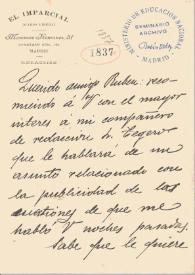 EL IMPARCIAL
MADRID
REDACCIÓN
1837
MINISTERIO DE EDUCACIÓN NACIONAL
SEMINARIO
ARCHIVO
Rubén Darío
MADRID
Querido amigo Rubén: reco-
miendo a V. con el mayor
interés a mi compañero
de redacción Sr.
que le hablará de un
asunto relacionado con
la publicidad de las
cuestiones de que me
habló V. noches pasadas.
Sabe que le quiere